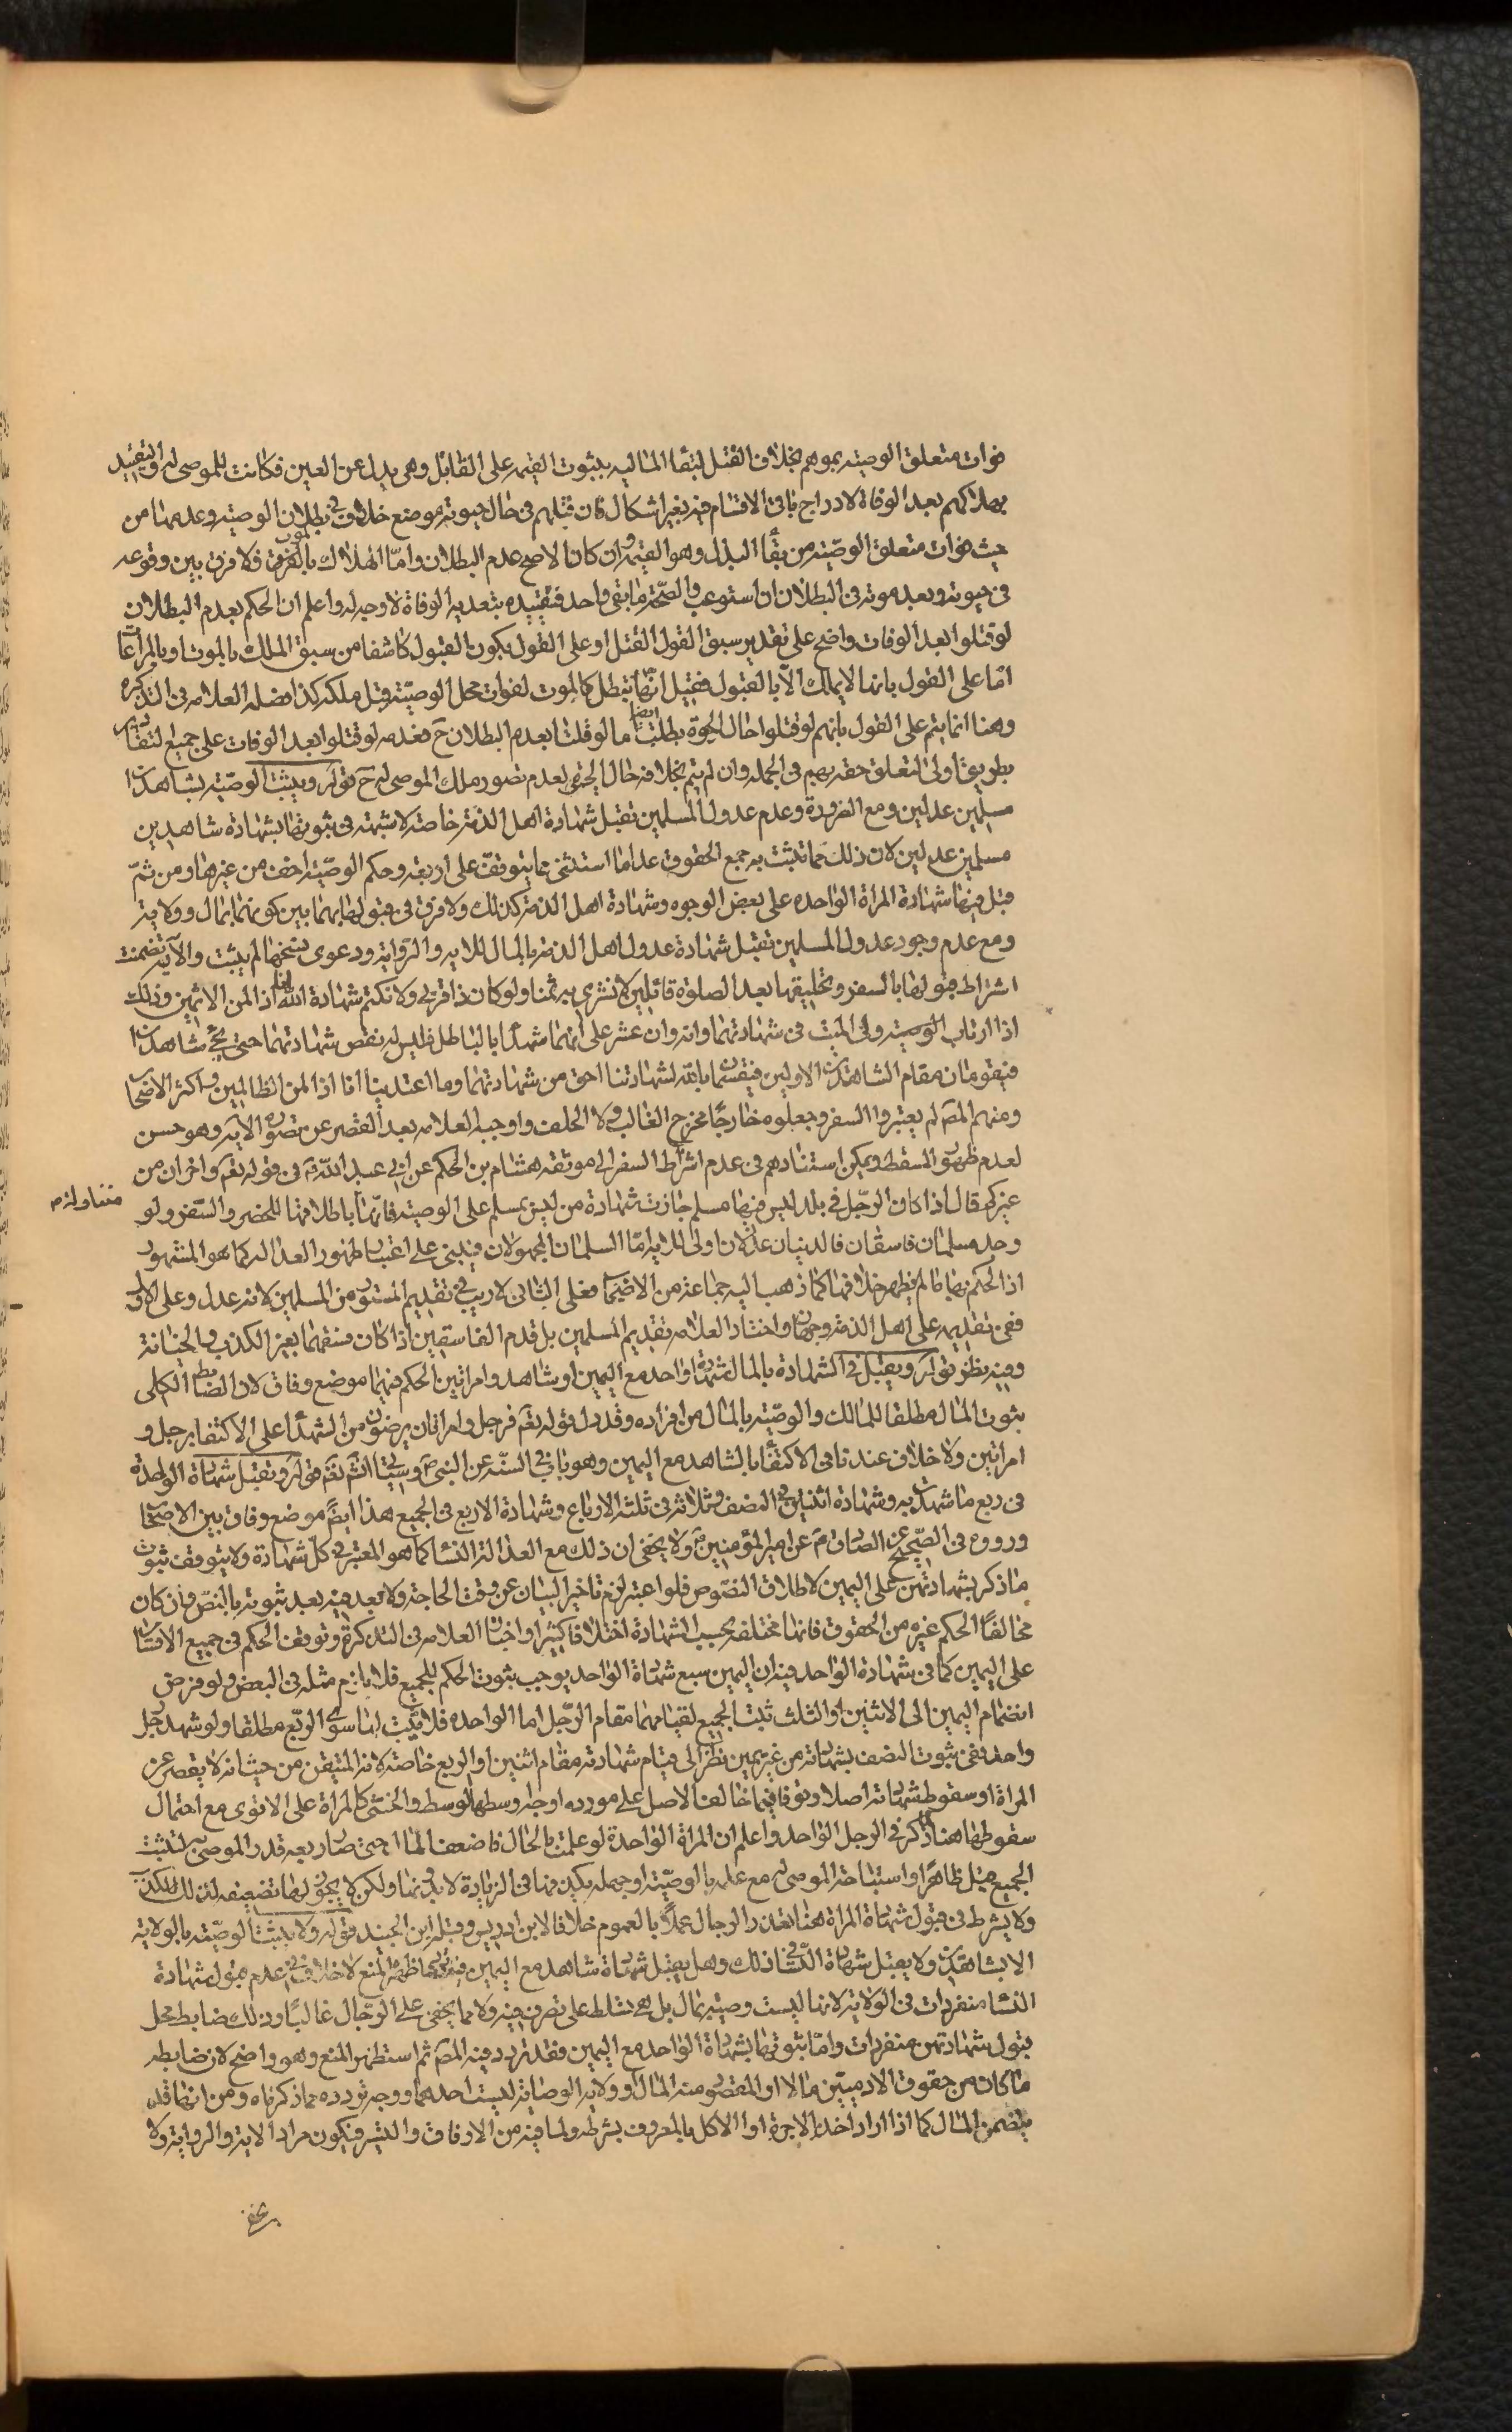 فوات متعلق الوصيته بموتهم بخلاف القتل لبقاء الماليه بثبوت القيمه على القاتل وهى بدل عن العين فكانت للموصى له والتقييد
بهلاكهم بعد الوفاة لادراج باقى الاقسام فيه بغير اشكال فان قتلهم فى حال حيوته موضع خلاف فى بطلان الوصيه وعدمها من
حيث فوات متعلق الوصيّة ومن بقاء البدل وهو القيمة وان كان الاصح عدم البطلان وامّا الهلاك بالموت فلا فرق بين وقوعه
فى حيوته وبعد موته فى البطلان ان استوعب والصحّة ما بقى واحد فتقييده ببعديه الوفاة لا وجه له واعلم ان الحكم بعدم البطلان
لو قتلوا بعد الوفات واضح على تقدير سبق القبول القتل او على القول بكون القبول كاشفا من سبق الملك بالموت او بالمراعا
امّا على القول بانه لا يملك الّا بالقبول فقيل انّها تبطل كالموت لفوات محل الوصيّته قبل ملكه كذا فصله العلامه فى التذكره
وهذا انما يتم على القول بانهم لو قتلوا حال الحيوة بطلت ايضا ما لو قلنا بعدم البطلان ح فعدمه لو قتلوا بعد الوفات على جميع التقادير
بطريق اولى لتعلق حقه بهم فى الجمله وان لم يتم بخلافه حال الحيوة لعدم تصور ملك الموصى له ح قوله ويثبت الوصيّه بشاهدين
مسلمين عدلين ومع الضرورة وعدم عدول المسلمين تقبل شهادة اهل الذمه خاصته لا شبهة فى ثبوتها بشهادة شاهدين
مسلمين عدلين لان ذلك مما تثبت به جمع الحقوق عدا ما استثنى مما يتوقف على اربعه وحكم الوصيّه اخف من غيرها ومن ثمّ
قبل فيها شهادة المراة الواحده على بعض الوجوه وشهادة اهل الذمه كذلك ولا فرق فى قبولها بهما بين كونهما بمال وولاية
ومع عدم وجود عدول المسلمين تقبل شهادة عدول اهل الذمه بالمال للايه والرواية ودعوى نسخها لم يثبت والآيه تضمنت
اشتراط قبولها بالسفر وتحليفهما بعد الصلوة قائلين لا نشترى به ثمنا ولو كان ذا قربى ولا نكتم شهادة الله انا اذا لمن الاثمين وذلك
اذا ارتاب الوصيه ولى الميت فى شهادتهما وانه وان عثر على انهما شهدا بالباطل فليس له نقض شهادتهما حتى يجئ شاهدان
فيقومان مقام الشاهدين الاولين فيقسمان بالله لشهادتنا احق من شهادتهما وما اعتدينا انا اذا لمن الظالمين واكثر الاصحاب
ومنهم المص لم يعتبروا السفر وجعلوه خارجًا مخرج الغالب ولا الحلف واوجبه العلامه بعد العصر عن بصورة الايه وهو حسن
لعدم ظهور المسقط ويمكن استنادهم فى عدم اشتراط السفر الى موثقه هشام بن الحكم عن ابى عبد اللّه ع فى قوله تعم او اخران من
غيركم قال اذا كان الرّجل فى بلد ليس فيها مسلم جازت شهادة من ليس بمسلم على الوصيته فانّها باطلاقها متناوله للحضر والسّفر ولو
وجد مسلمان فاسقان فالذميان عدلان اولى للايه امّا المسلمان المجهولان فيبنى على اعتبار ظهور العداله كما هو المشهور
اذا الحكم بها ما لم يظهر خلافها كما ذهب اليه جماعة من الاصحاب فعلى الثانى لا ريب فى تقديم المستور من المسلمين لانه عدل وعلى الاول
ففى تقديمه على اهل الذمه وجهان واختار العلامه تقديم المسلمين بل قدم الفاسقين اذا كان فسقهما بغير الكذب والخيانة
وفيه نظر قوله ويقبل فى الشهادة بالمال شهادة واحد مع اليمين او شاهد وامراتين الحكم فيهما موضع وفاق لان الضابط الكلى
بثوت المال مطلقا للمالك والوصيّه بالمال من افراده وقد دل قوله تعم فرجل وامراتان ممن ترضون من الشهداء على الاكتفا برجل و
امراتين ولا خلاف عندنا فى الاكتفاء بالشاهد مع اليمين وهو ثابت فى السنّه عن النبى ص وسياتى انشم تعم قوله وتقبل شهادة الواحدة
فى ربع ما شهدت به وشهادة اثنتين فى النصف وثلاثه فى ثلثة الارباع وشهادة الاربع فى الجميع هذا ايضم موضع وفاق بين الاصحاب
ورووه فى الصّحيح عن الصادق م عن امير المؤمنين م ولا يخفى ان ذلك مع العدالة النساء كما هو المعتبر فى كلّ شهادة ولا يتوقف ثبوت
ما ذكر بشهادتهن على اليمين لاطلاق النصّوص فلو اعتبر لزم تاخير البيان عن وقت الحاجة ولا بعد فيه بعد ثبوته بالنصّ وان كان
مخالفًا الحكم غيره من الحقوق فانها مختلفه بحسب الشهادة اختلافا كثيرا واختار العلامه فى التذكرة وتوقف الحكم فى جميع الاقسام
على اليمين كما فى شهادة الواحد فيه ان اليمين سبع شهادة الواحد يوجب ثبوت الحكم للجميع فلا يلزم مثله فى البعض ولو فرض
انضمام اليمين الى الاثنين او الثلث ثبت الجميع لقيامهما مقام الرّجل اما الواحده فلا يثبت لها سوى الربّع مطلقا ولو شهد رجل
واحد ففى ثبوت النصف بشهادته من غير يمين نظرا الى قيام شهادته مقام اثنين او الربع خاصة لانه المتيقن من حيث انه لا يقصر عن
المراة او سقوط شهادته اصلا وتوقافيما خالف الاصل على مورده اوجه اوسطها الوسط والخنثى كالمراة على الاقوى مع احتمال
سقوطها هنا لما ذكر فى الرجل الواحد واعلم ان المراة الواحدة لو علمت بالحال فاضعف المال حتى صار ربعه قدر الموصى به لتثبت
الجميع قبل ظاهرًا واستباحة الموصى له مع علمه بالوصيّه او جهله يكون منافى الزيادة لا بد ونما ولكن لا يجوز لها تضعيفه لذلك للكذب
ولا يشرط فى قبول شهادة المراة هنا تعذر الرجال عملًا بالعموم خلافا لابن ادريس وقبله ابن الجنيد قوله ولا يثبت الوصيّه بالولايه
الا بشاهدين ولا يقبل شهادة النسّاء فى ذلك وهل يقبل شهادة شاهد مع اليمين فيه تردد اظهره المنع لا خلاف فى عدم قبول شهادة
النساء منفردات فى الولاية لانها ليست وصية بمال بل هى تسلط على تصرف فيه ولا مما يخفى على الرّجال غالبًا وذلك ضابط محل
قبول شهادتهن منفردات وامّا ثبوتها بشهادة الواحد مع اليمين فقد تردد فيه المص ثم استظهر المنع وهو واضح لان ضابطه
ما كان من حقوق الادميّين مالا او المقصود منه المال وولايه الوصايه ليست احدهما ووجه تردده مما ذكرناه ومن انها قد
يتضمن المال كما اذا اراد اخذ الاجرة او الاكل بالمعروف بشرطه ولما فيه من الارفاق والتيسر فيكون مراد الاية والرواية ولا